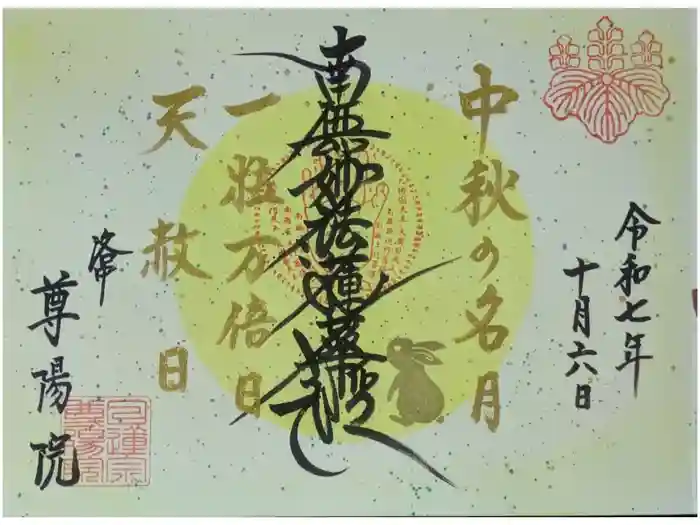 令和七年
十月六日
中秋の名月
南無妙法蓮華経
一粒万倍日
天赦日
尊陽院
日蓮宗
尊陽院